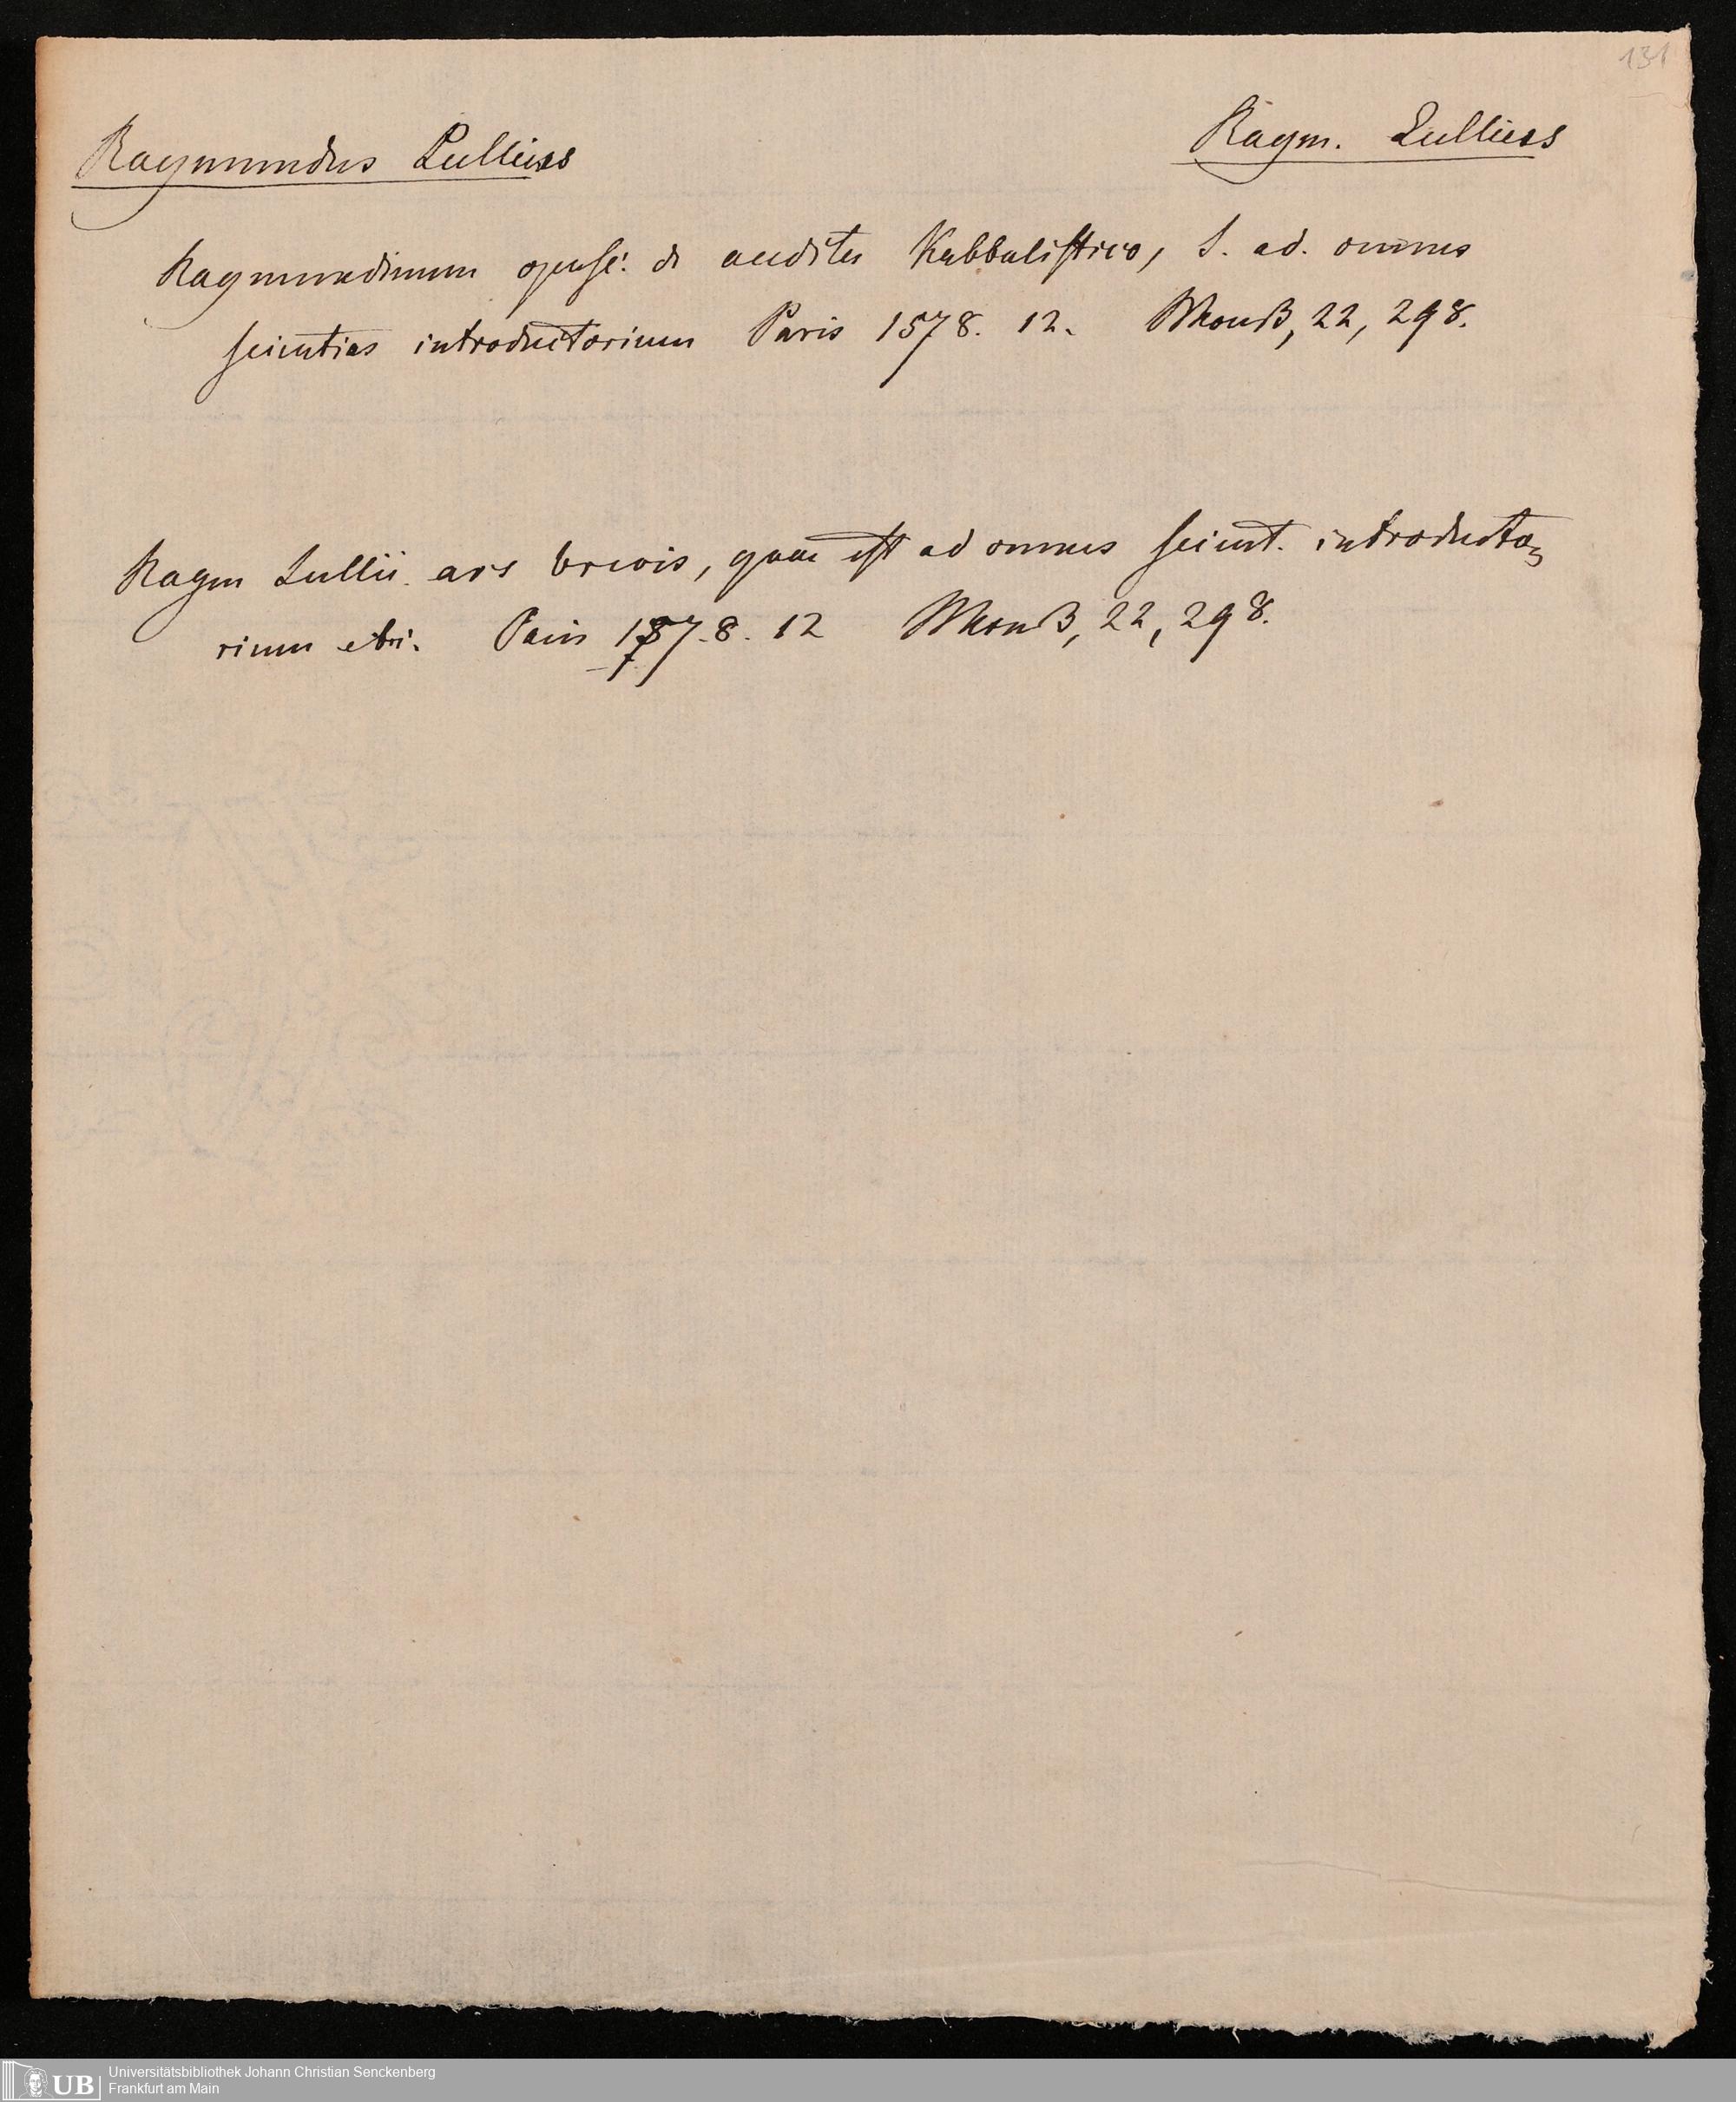 131
Raymundus Lullius
Raym. Lullius
Raymundinum opusc: de auditu Kabbalistico, S. ad. omnes
scientias introductorium Paris 1578. 12. MonB, 22, 298.
Raym Lullii ars brevis, quae est ad omnes scient. introducto-
rium Paris 1578. 12 MonB, 22, 298.
Universitätsbibliothek Johann Christian Senckenberg
Frankfurt am Main
UB